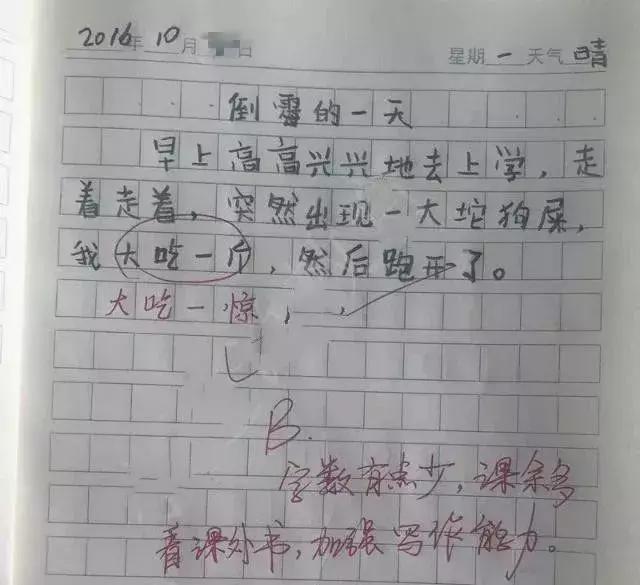 2016年 10月 日 星期一 天气 晴
倒霉的一天
早上高高兴兴地去上学，走
着走着，突然出现一大坨狗屎，
我大吃一斤，然后跑开了。
大吃一惊
B.
字数有点少，课余多
看课外书，加强写作能力。